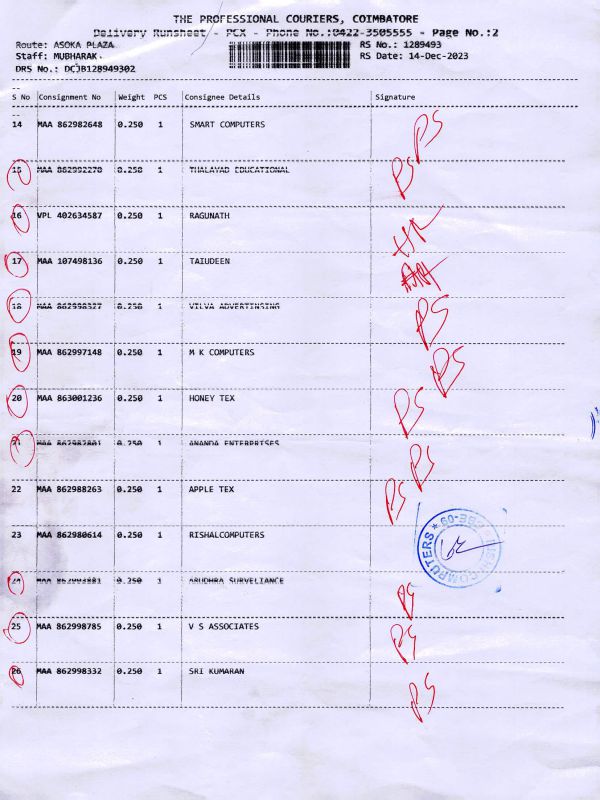 THE PROFESSIONAL COURIERS, COIMBATORE
Delivery Runsheet - PCX - Phone No.:0422-3505555 - Page No.:2
Route: ASOKA PLAZA RS No.: 1289493
Staff: MUBHARAK. RS Date: 14-Dec-2023
DRS No.: DCJB128949302
S No Consignment No Weight PCS Consignee Details Signature
14 MAA 862982648 0.250 1 SMART COMPUTERS PS
15 MAA 862992270 0.250 1 THALAYAD EDUCATIONAL PS
16 VPL 402634587 0.250 1 RAGUNATH
17 MAA 107498136 0.250 1 TAIUDEEN
18 MAA 862998327 0.250 1 VILVA ADVERTINSING PS
19 MAA 862997148 0.250 1 M K COMPUTERS PS
20 MAA 863001236 0.250 1 HONEY TEX PS
21 MAA 862982801 0.250 1 ANANDA ENTERPRISES PS
22 MAA 862988263 0.250 1 APPLE TEX PS
23 MAA 862980614 0.250 1 RISHALCOMPUTERS
COMPUTERS
24 MAA 0.250 1 ARUDHRA SURVELIANCE PS
25 MAA 862998785 0.250 1 V S ASSOCIATES PS
26 MAA 862998332 0.250 1 SRI KUMARAN PS